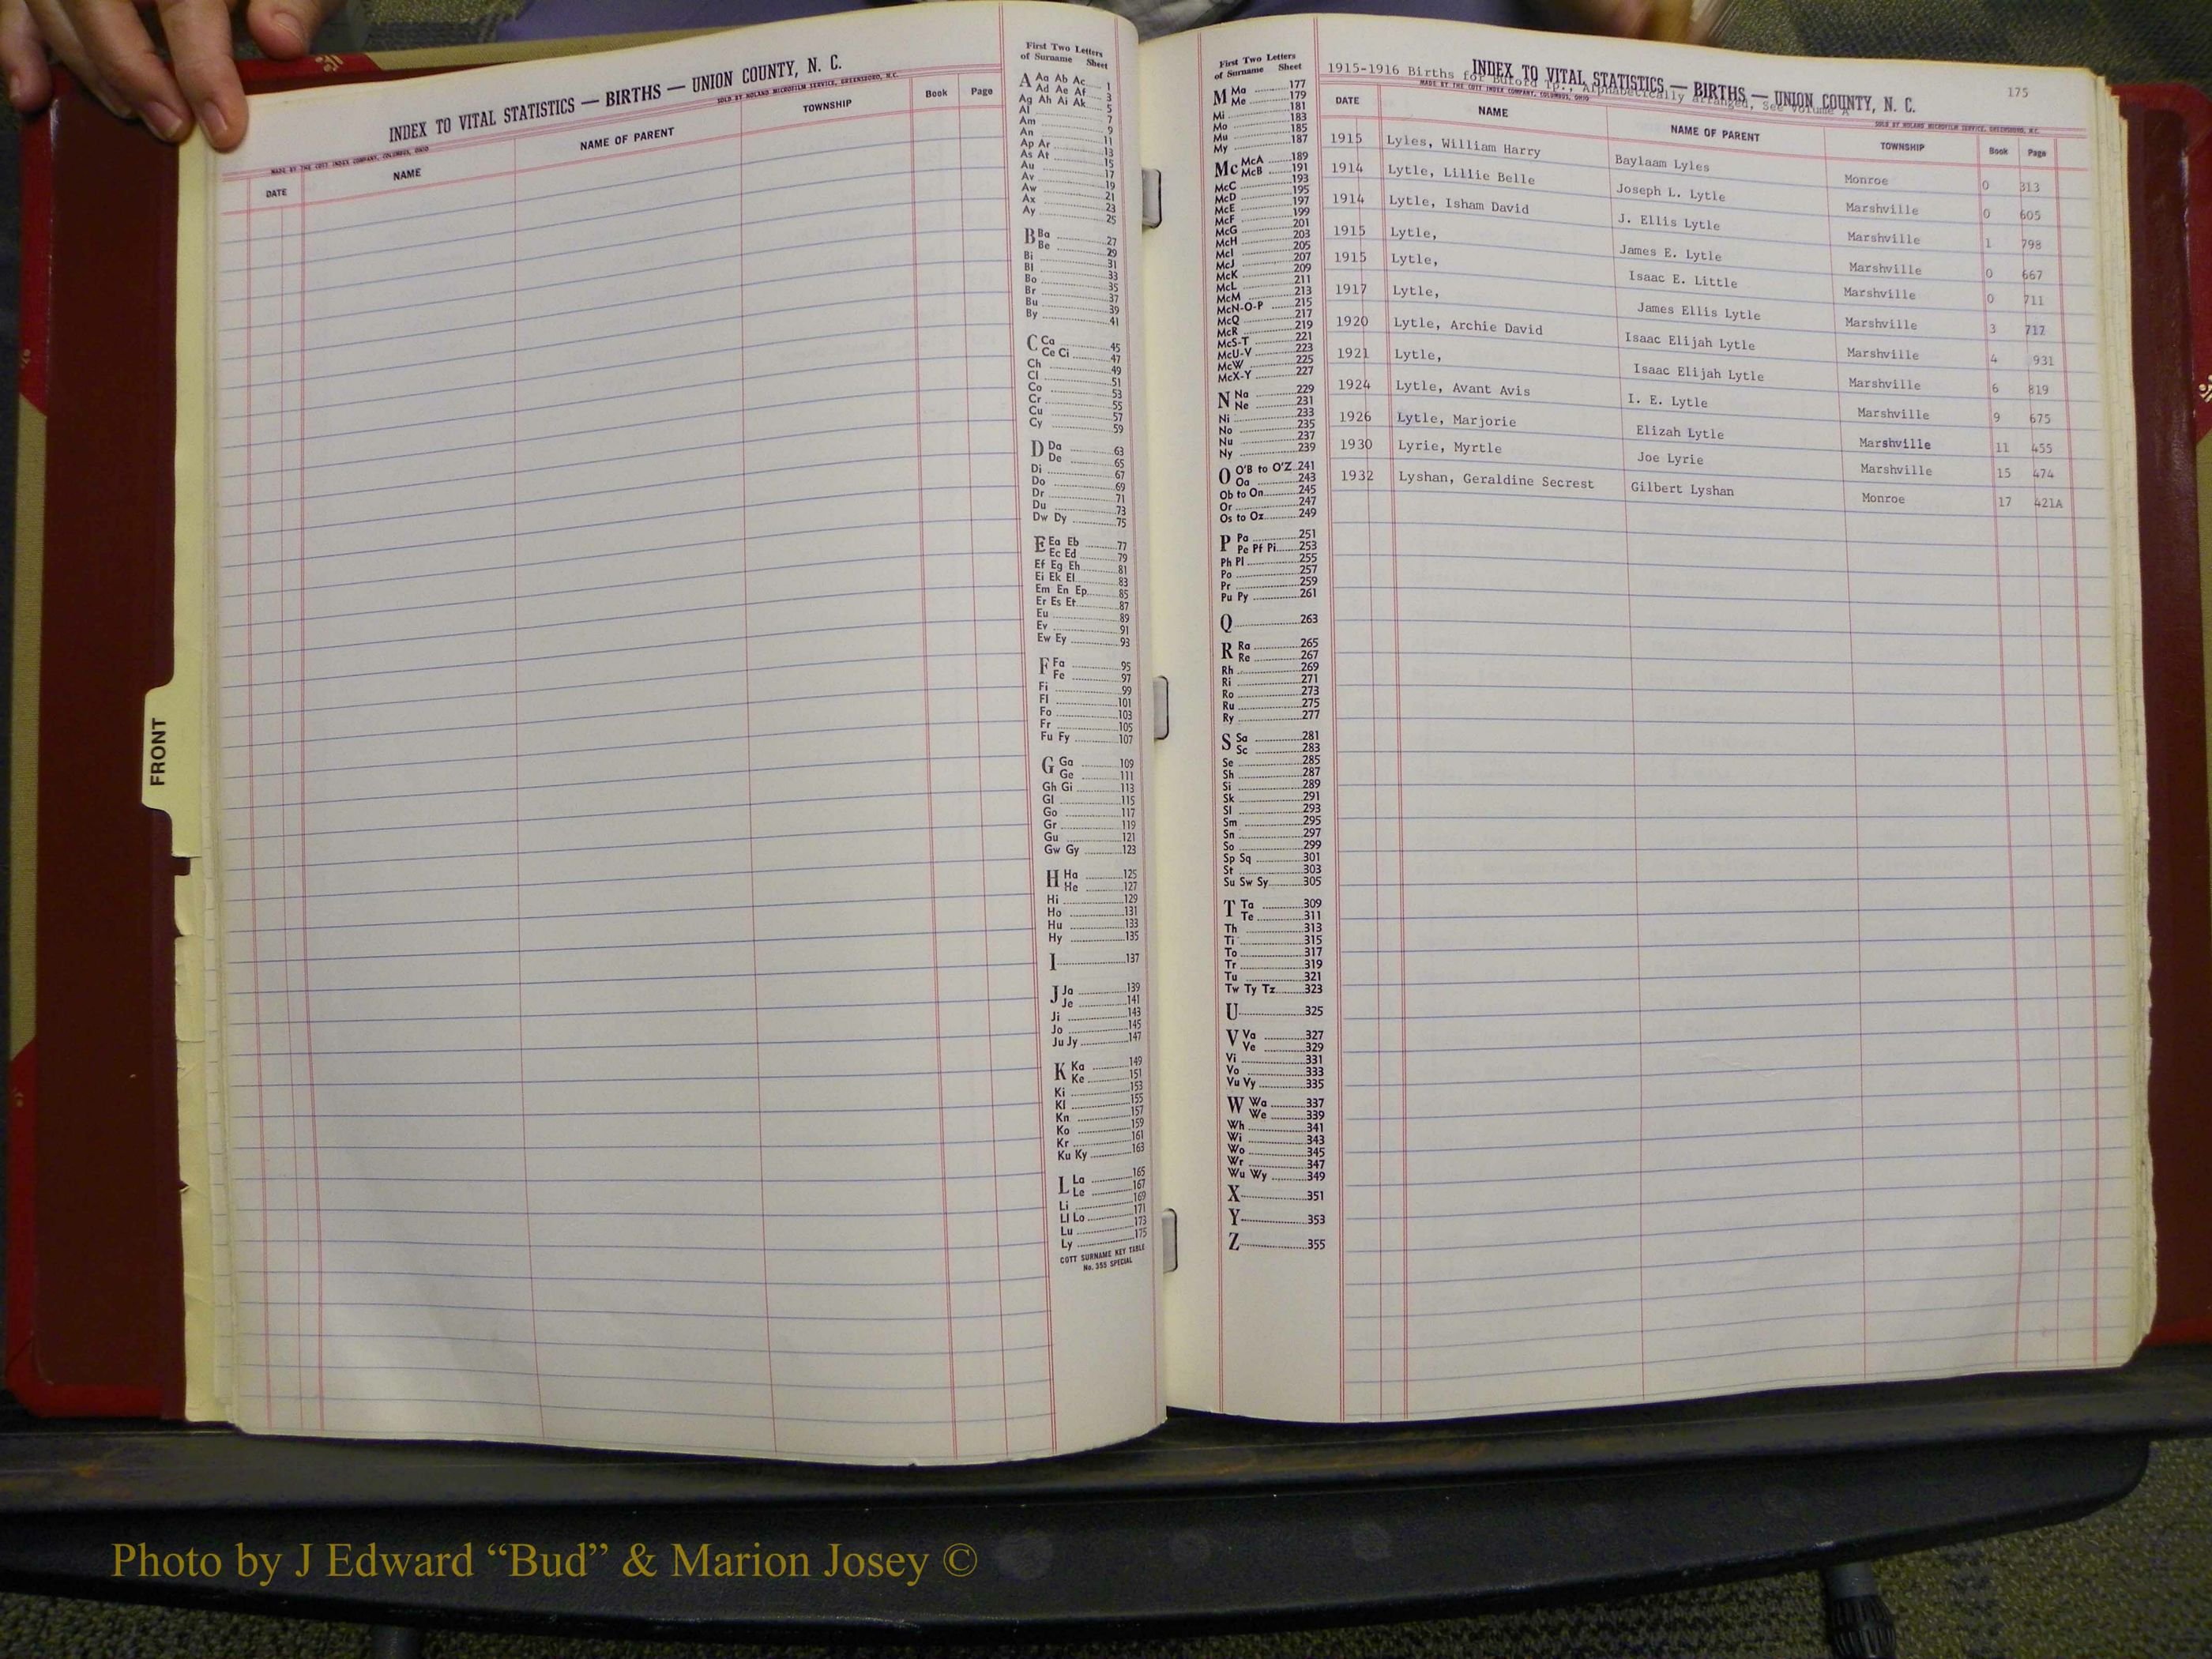 INDEX TO VITAL STATISTICS — BIRTHS — UNION COUNTY, N. C.
MADE BY THE COTT INDEX COMPANY, COLUMBUS, OHIO SOLD BY NOLAND MICROFILM SERVICE, GREENSBORO, N.C.
DATE NAME NAME OF PARENT TOWNSHIP Book Page
FRONT
First Two Letters
of Surname Sheet
A Aa Ab Ac 1
Ad Ae Af 3
Ag Ah Ai Ak 5
Al 7
Am 9
An 11
Ap Ar 13
As At 15
Au 17
Av 19
Aw 21
Ax 23
Ay 25
B Ba 27
Be 29
Bi 31
Bl 33
Bo 35
Br 37
Bu 39
By 41
C Ca 45
Ce Ci 47
Ch 49
Cl 51
Co 53
Cr 55
Cu 57
Cy 59
D Da 63
De 65
Di 67
Do 69
Dr 71
Du 73
Dw Dy 75
E Ea Eb 77
Ec Ed 79
Ef Eg Eh 81
Ei Ek El 83
Em En Ep 85
Er Es Et 87
Eu 89
Ev 91
Ew Ey 93
F Fa 95
Fe 97
Fi 99
Fl 101
Fo 103
Fr 105
Fu Fy 107
G Ga 109
Ge 111
Gh Gi 113
Gl 115
Go 117
Gr 119
Gu 121
Gw Gy 123
H Ha 125
He 127
Hi 129
Ho 131
Hu 133
Hy 135
I 137
J Ja 139
Je 141
Ji 143
Jo 145
Ju Jy 147
K Ka 149
Ke 151
Ki 153
Kl 155
Kn 157
Ko 159
Kr 161
Ku Ky 163
L La 165
Le 167
Li 169
Ll Lo 171
Lu 173
Ly 175
COTT SURNAME KEY TABLE
No. 355 SPECIAL
First Two Letters
of Surname Sheet
M Ma 177
Me 179
Mi 181
Mo 183
Mu 185
My 187
Mc McA 189
McB 191
McC 193
McD 195
McE 197
McF 199
McG 201
McH 203
McI 205
McJ 207
McK 209
McL 211
McM 213
McN-O-P 215
McQ 217
McR 219
McS-T 221
McU-V 223
McW 225
McX-Y 227
N Na 229
Ne 231
Ni 233
No 235
Nu 237
Ny 239
O O'B to O'Z 241
Oa 243
Ob to On 245
Or 247
Os to Oz 249
P Pa 251
Pe Pf Pi 253
Ph Pl 255
Po 257
Pr 259
Pu Py 261
Q 263
R Ra 265
Re 267
Rh 269
Ri 271
Ro 273
Ru 275
Ry 277
S Sa 281
Sc 283
Se 285
Sh 287
Si 289
Sk 291
Sl 293
Sm 295
Sn 297
So 299
Sp Sq 301
St 303
Su Sw Sy 305
T Ta 309
Te 311
Th 313
Ti 315
To 317
Tr 319
Tu 321
Tw Ty Tz 323
U 325
V Va 327
Ve 329
Vi 331
Vo 333
Vu Vy 335
W Wa 337
We 339
Wh 341
Wi 343
Wo 345
Wr 347
Wu Wy 349
X 351
Y 353
Z 355
175
INDEX TO VITAL STATISTICS — BIRTHS — UNION COUNTY, N. C.
1915-1916 Births for Buford Tp., Alphabetically arranged, See Volume A
MADE BY THE COTT INDEX COMPANY, COLUMBUS, OHIO SOLD BY NOLAND MICROFILM SERVICE, GREENSBORO, N.C.
DATE NAME NAME OF PARENT TOWNSHIP Book Page
1915 Lyles, William Harry Baylaam Lyles Monroe 0 313
1914 Lytle, Lillie Belle Joseph L. Lytle Marshville 0 605
1914 Lytle, Isham David J. Ellis Lytle Marshville 1 798
1915 Lytle, James E. Lytle Marshville 0 667
1915 Lytle, Isaac E. Little Marshville 0 711
1917 Lytle, James Ellis Lytle Marshville 3 717
1920 Lytle, Archie David Isaac Elijah Lytle Marshville 4 931
1921 Lytle, Isaac Elijah Lytle Marshville 6 819
1924 Lytle, Avant Avis I. E. Lytle Marshville 9 675
1926 Lytle, Marjorie Elizah Lytle Marshville 11 455
1930 Lyrie, Myrtle Joe Lyrie Marshville 15 474
1932 Lyshan, Geraldine Secrest Gilbert Lyshan Monroe 17 421A
Photo by J Edward “Bud” & Marion Josey ©